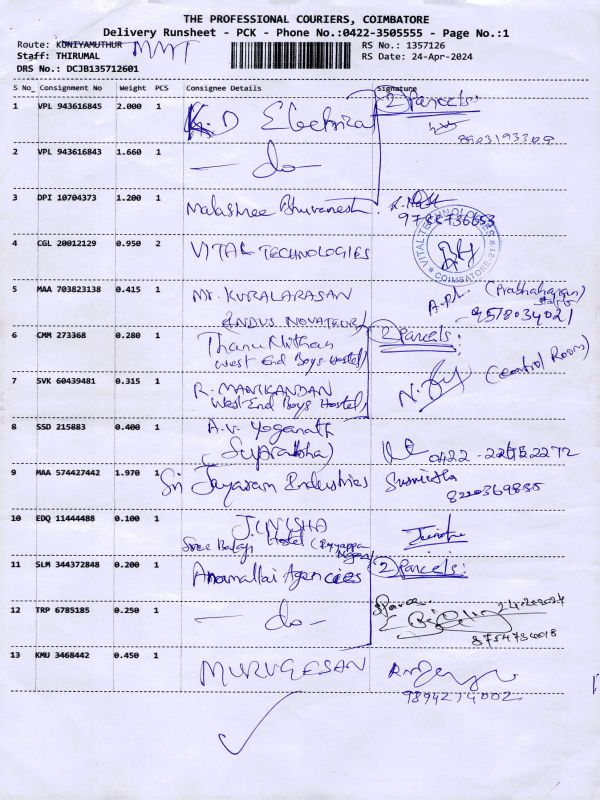 THE PROFESSIONAL COURIERS, COIMBATORE
Delivery Runsheet - PCK - Phone No.:0422-3505555 - Page No.:1
Route: KUNIYAMUTHUR MMT RS No.: 1357126
Staff: THIRUMAL RS Date: 24-Apr-2024
DRS No.: DCJB135712601
S No_ Consignment No Weight PCS Consignee Details Signature
1 VPL 943616845 2.000 1 K.D Electrical (2) Parcels
2 VPL 943616843 1.660 1 - do -
3 DPI 10704373 1.200 1 Malashree Bhuvanesh
4 CGL 20012129 0.950 2 VITAL TECHNOLOGIES
VITAL TECHNOLOGIES
COIMBATORE-21
5 MAA 703823138 0.415 1 Mr. KURALARASAN
INDUS NOVATEUR (Prabhaharan)
9578034021
6 CMM 273368 0.280 1 (2) Parcels:
West End Boys Hostel
7 SVK 60439481 0.315 1 R. MANIKANDAN (Control Room)
West End Boys Hostel
8 SSD 215883 0.400 1 A.V. Yoganath
(Suprabha)
9 MAA 574427442 1.970 1 Sri Jayaram Industries
10 EDQ 11444488 0.100 1 JINISHA
Sree Balaji Hostel (Iyyappa Nagar)
11 SLM 344372848 0.200 1 Anamallai Agencies (2) Parcels:
12 TRP 6785185 0.250 1 - do -
8754734018
13 KMU 3468442 0.450 1 MURUGESAN
9894274002